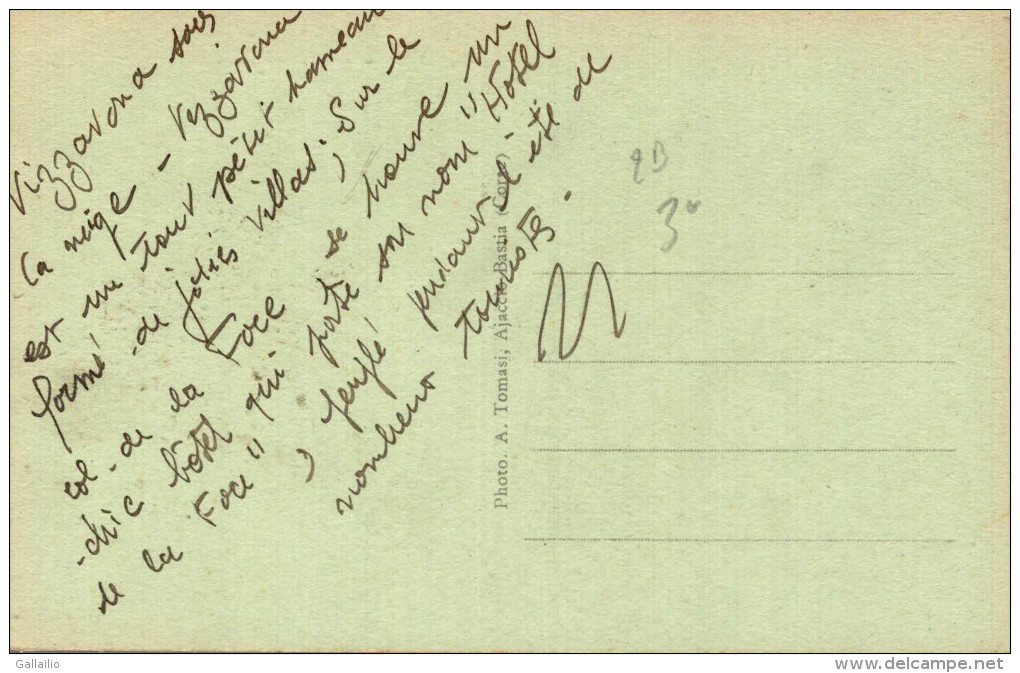 Vizzavona sous
la neige - Vizzavona
est un tout petit hameau
formé de jolies villas; sur le
col de la Foce se trouve un
chic hôtel qui porte son nom "Hôtel
de la Foce", peuplé pendant l'été de
nombreux touristes.
Photo. A. Tomasi, Ajaccio-Bastia (Corse)
2B
3
Gallailio
www.delcampe.net